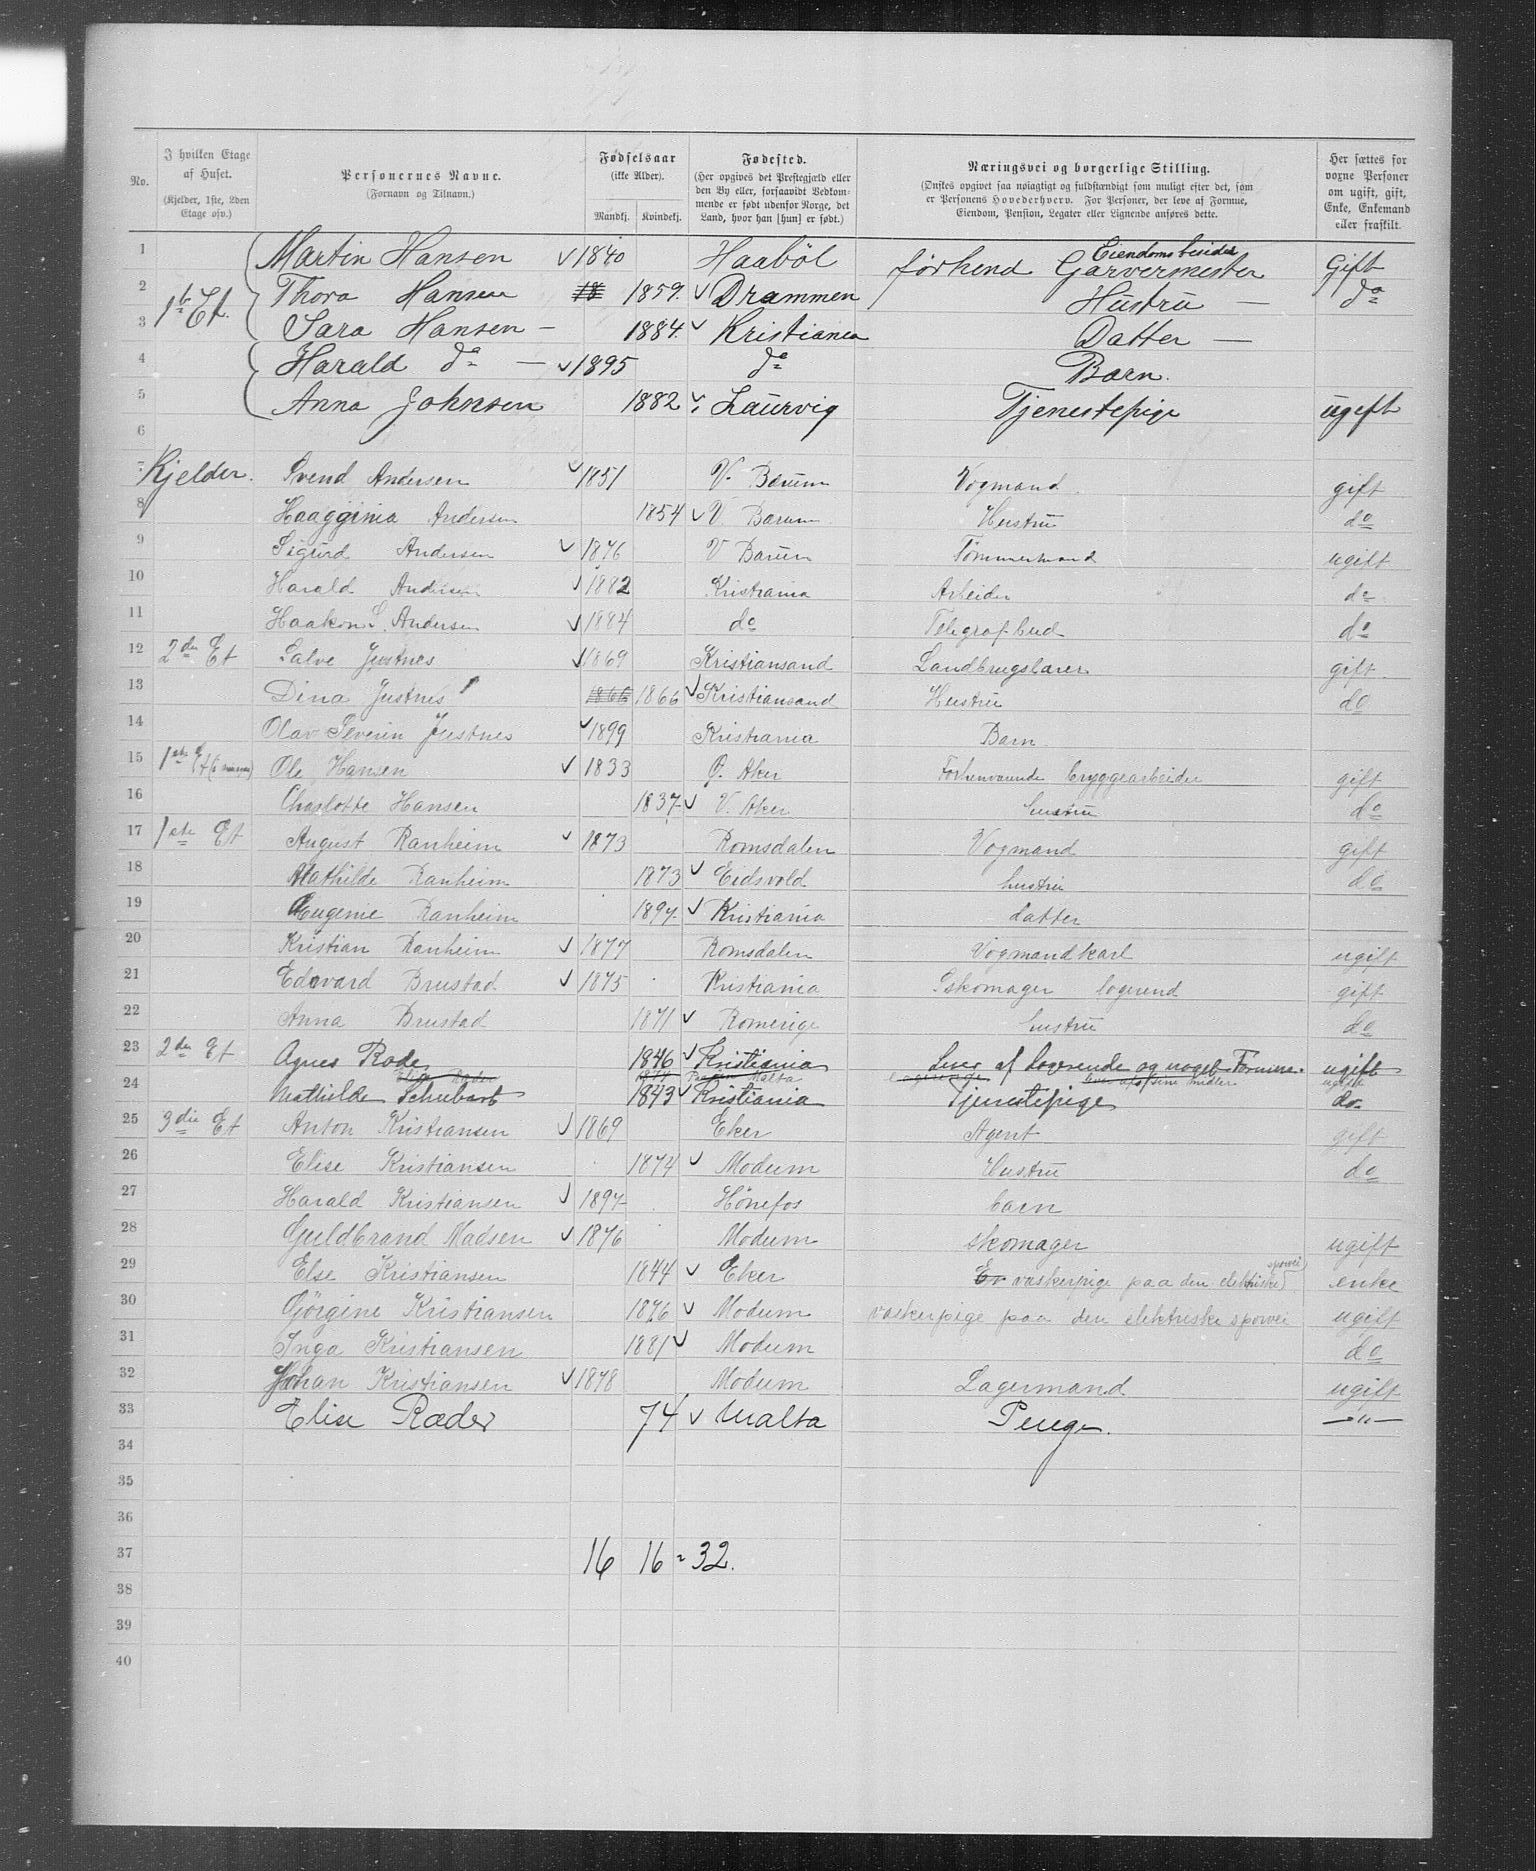 No. I hvilken Etage af Huset. (Kjelder, 1ste, 2den Etage osv.) Personernes Navne. (Fornavn og Tilnavn.) Fødselsaar (ikke Alder). Mandkj. Kvindekj. Fødested. (Her opgives det Prestegjæld eller den By eller, forsaavidt Vedkommende er født udenfor Norge, det Land, hvor han [hun] er født.) Næringsvei og borgerlige Stilling. (Ønskes opgivet saa nøiagtigt og fuldstændigt som muligt efter det, som er Personens Hovederhverv. For Personer, der leve af Formue, Eiendom, Pension, Legater eller Lignende anføres dette. Her sættes for voxne Personer om ugift, gift, Enke, Enkemand eller fraskilt.
1 Martin Hansen 1840 Haaböl förhend Garvermester Eiendomsbesidder Gift
2 1ste Et. Thora Hansen 18 1859. Drammen Hustru — do
3 Sara Hansen – 1884. Kristiania Datter —
4 Harald do — 1895 do Barn.
5 Anna Johnsen 1882 Laurvig Tjenestepige ugift
6
7 Kjelder. Svend Andersen 1851 V. Bærum Vogmand gift
8 Haagginia Andersen 1854 V. Bærum Hustru do
9 Sigurd Andersen 1876 V Bærum Tømmermand ugift
10 Harald Andersen 1882 Kristiania Arbeider do
11 Haakon S. Andersen 1884 do Telegrafbud do
12 2den Et Salve Justnes 1869 Kristiansand Landbrugslærer gift
13 Dina Justnes 1866 1866 Kristiansand Hustru do
14 Olav Severin Justnes 1899 Kristiania Barn
15 1ste Et Ole Hansen 1833 Ø. Aker Forhenværende bryggearbeider gift
16 Charlotte Hansen 1837 V. Aker hustru do
17 1ste Et August Ranheim 1873 Romsdalen Vogmand gift
18 Mathilde Ranheim 1873 Eidsvold hustru do
19 Eugenie Ranheim 1897 Kristiania datter
20 Kristian Ranheim 1877 Romsdalen Vogmandkarl ugift
21 Edevard Brustad 1875 Kristiania Skomager logerend gift
22 Anna Brustad 1871 Romerige hustru do
23 2den Et Agnes Rode 1846 Kristiania Lever af logerende og noget Formue. ugift
Elise Ræder 1874 Malta ugift
24 Mathilde Schubart 1843 Kristiania Tjenestepige do
25 3die Et Anton Kristiansen 1869 Eker Agent gift
26 Elise Kristiansen 1874 Modum Hustru do
27 Harald Kristiansen 1897 Hönefos barn
28 Guldbrand Madsen 1876 Modum skomager ugift
29 Else Kristiansen 1844 Eker Er vaskerpige paa den elektriske sporvei enke
30 Görgine Kristiansen 1876 Modum vaskerpige paa den elektriske sporvei ugift
31 Inga Kristiansen 1881 Modum do
32 Johan Kristiansen 1878 Modum Lagermand ugift
33 Elise Ræder 74 Malta Penge. —"—
34
35
36
37 16 16 = 32.
38
39
40